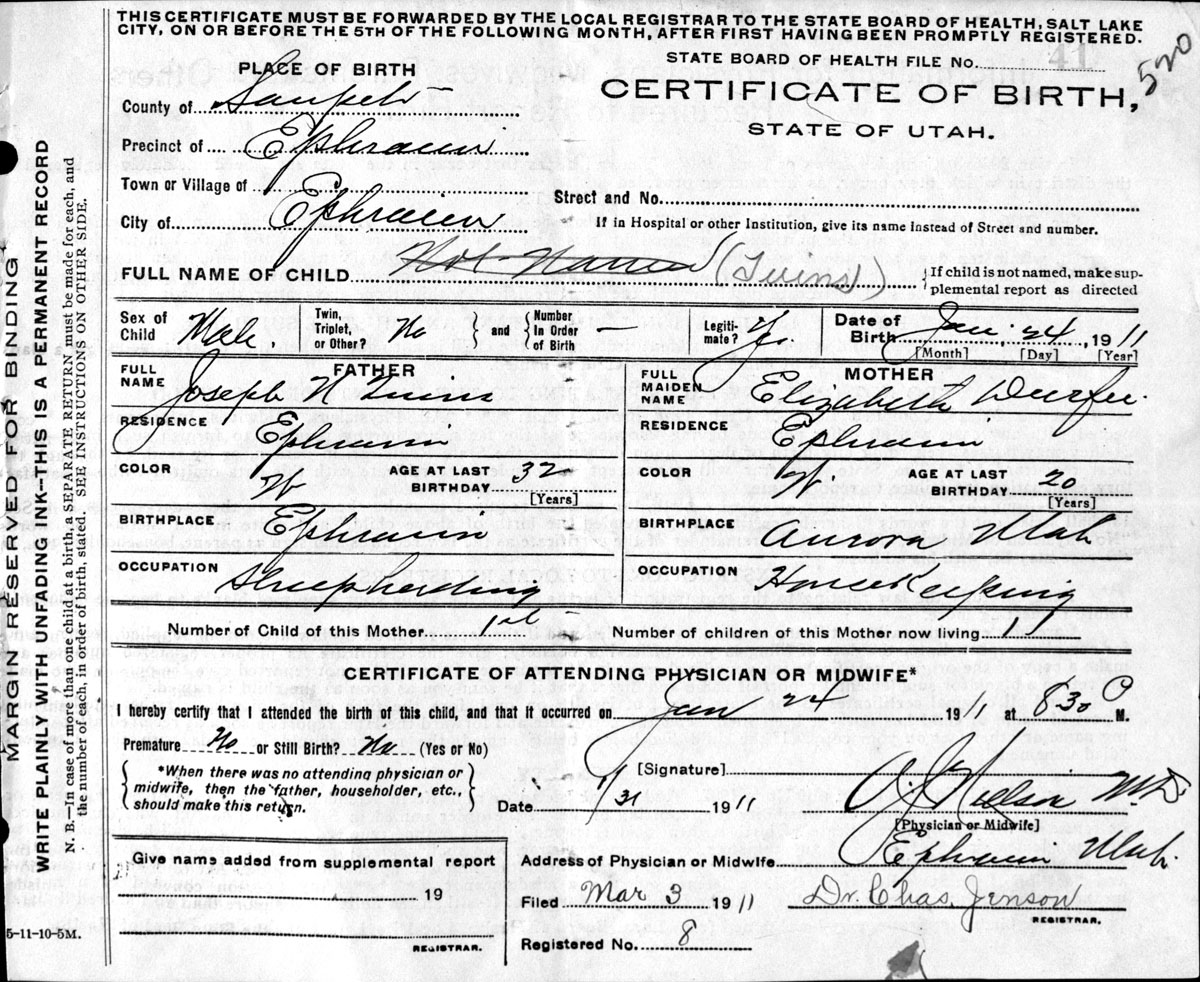 THIS CERTIFICATE MUST BE FORWARDED BY THE LOCAL REGISTRAR TO THE STATE BOARD OF HEALTH, SALT LAKE
CITY, ON OR BEFORE THE 5TH OF THE FOLLOWING MONTH, AFTER FIRST HAVING BEEN PROMPTLY REGISTERED.
STATE BOARD OF HEALTH FILE No. 41
520
PLACE OF BIRTH
CERTIFICATE OF BIRTH,
STATE OF UTAH.
County of Sanpete
Precinct of Ephraim
Town or Village of
Street and No.
City of Ephraim
If in Hospital or other Institution, give its name instead of Street and number.
FULL NAME OF CHILD Not Named (Twins)
If child is not named, make sup-
plemental report as directed
Sex of Child Male. Twin, Triplet, or Other? No and Number In Order of Birth — Legiti- mate? Ys. Date of Birth Jan. 24, 1911
[Month] [Day] [Year]
FATHER
FULL NAME Joseph
RESIDENCE Ephraim
COLOR W AGE AT LAST BIRTHDAY 32
[Years]
BIRTHPLACE Ephraim
OCCUPATION Sheepherding
MOTHER
FULL MAIDEN NAME Elizabeth Durfee.
RESIDENCE Ephraim
COLOR W. AGE AT LAST BIRTHDAY 20
[Years]
BIRTHPLACE Aurora Utah
OCCUPATION House Keeping
Number of Child of this Mother 1st Number of children of this Mother now living 1
CERTIFICATE OF ATTENDING PHYSICIAN OR MIDWIFE*
I hereby certify that I attended the birth of this child, and that it occurred on Jan 24 1911 at 830 P M.
Premature No or Still Birth? No (Yes or No)
*When there was no attending physician or
midwife, then the father, householder, etc.,
should make this return.
[Signature] Nielson M.D.
Date 1/31 1911
[Physician or Midwife]
Give name added from supplemental report
19
REGISTRAR.
Address of Physician or Midwife Ephraim Utah.
Filed Mar 3 1911 Dr. Chas. Jenson
REGISTRAR.
Registered No. 8
MARGIN RESERVED FOR BINDING
WRITE PLAINLY WITH UNFADING INK—THIS IS A PERMANENT RECORD
N. B.—In case of more than one child at a birth, a SEPARATE RETURN must be made for each, and
the number of each, in order of birth, stated. SEE INSTRUCTIONS ON OTHER SIDE.
5-11-10-5M.